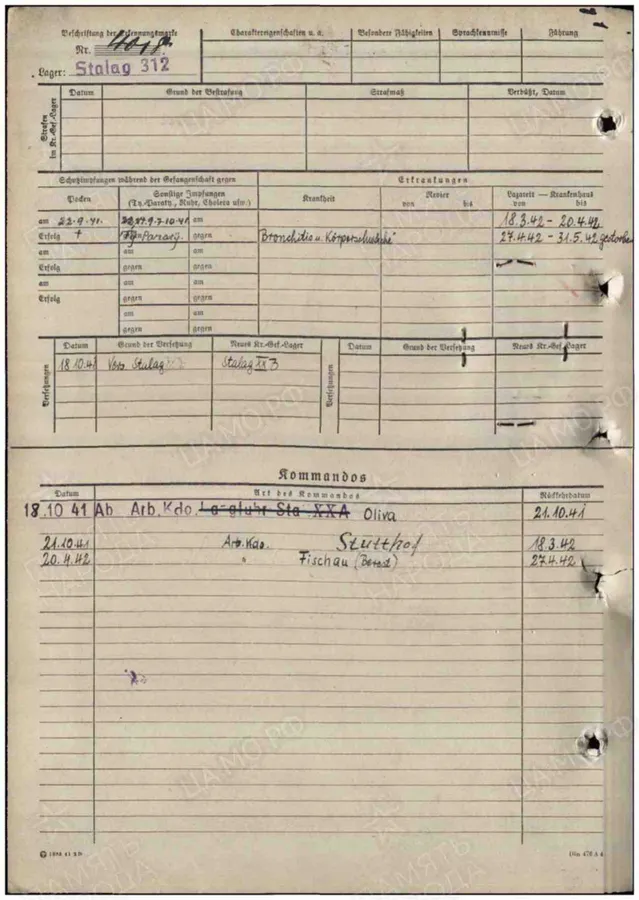 Beschriftung der Erkennungsmarke
Nr.
Lager: Stalag 312
Charaktereigenschaften u. a.
Besondere Fähigkeiten
Sprachkenntnisse
Führung
Strafen im Kr.-Gef.-Lager
Datum
Grund der Bestrafung
Strafmaß
Verbüßt, Datum
Schutzimpfungen während der Gefangenschaft gegen
Erkrankungen
Pocken
Sonstige Impfungen
(Ty.-Paraty., Ruhr, Cholera usw.)
Krankheit
Revier
von bis
Lazarett — Krankenhaus
von bis
am 22.9.41. am
18.3.42 - 20.4.42
Erfolg + gegen
Bronchitis u. Körperschwäche
27.4.42 - 31.5.42 gestorben
am am am
Erfolg gegen gegen
am am am
Erfolg gegen gegen
am am
gegen gegen
Versetzungen
Datum
Grund der Versetzung
Neues Kr.-Gef.-Lager
Versetzungen
Datum
Grund der Versetzung
Neues Kr.-Gef.-Lager
18.10.41 Vers. Stalag
Stalag XX B
Kommandos
Datum
Art des Kommandos
Rückkehrdatum
18.10 41 Ab Arb. Kdo. XXA Oliva 21.10.41
21.10.41 Arb. Kdo. Stutthof 18.3.42
20.4.42 " Fischau 27.4.42
ЦАМО РФ
ПАМЯТЬ НАРОДА